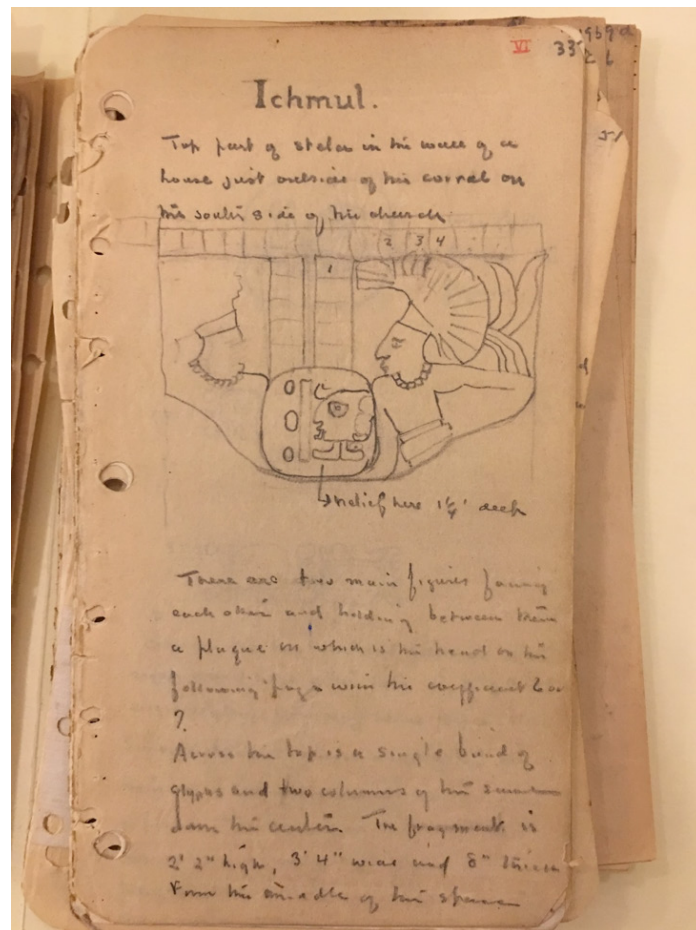 VI 33
Ichmul.
Top part of stela in the wall of a
house just outside of the corral on
the south side of the church
2 3 4
1
relief here 1 1/4" deep
There are two main figures facing
each other and holding between them
a plaque on which is the head on the
following page with the coefficient 6 or
7.
Across the top is a single band of
glyphs and two columns of the same
down the center. The fragment is
2' 2" high, 3' 4" wide and 8" thick
From the middle of the